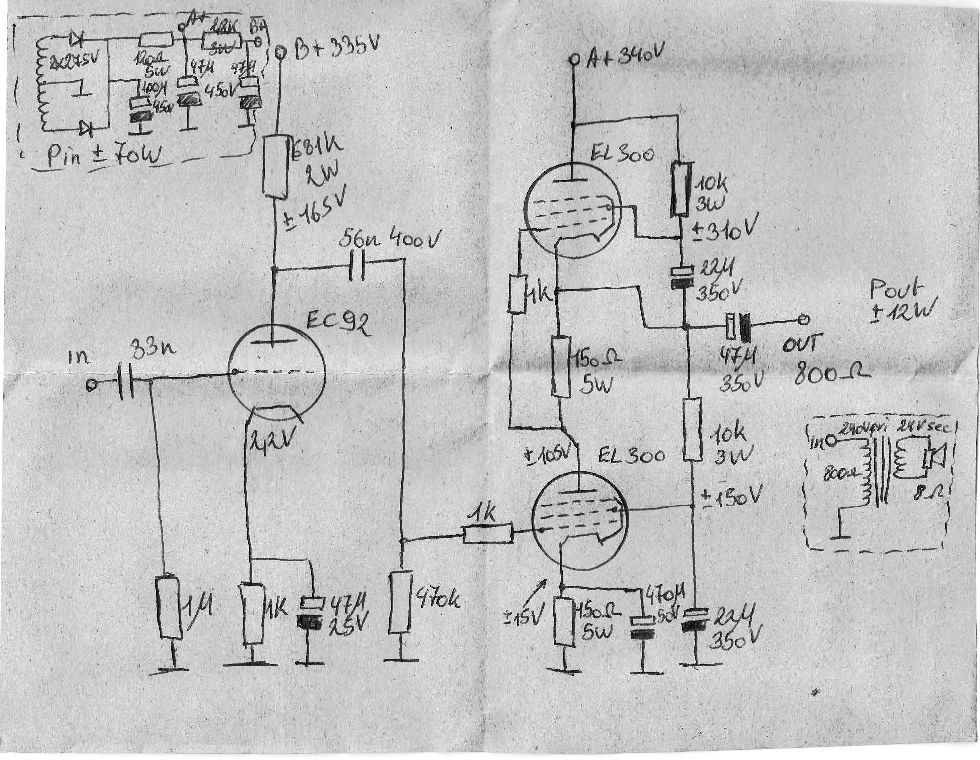 A+
BA
2x275V
120Ω
5W
3W
47µ
450V
47µ
100µ
450V
Pin ± 70W
B+ 335V
681K
2W
±165V
56n 400V
EC92
in
33n
2,2V
1M
1K
47µ
25V
470k
1k
A+ 340V
EL300
10k
3W
±310V
22µ
350V
1k
150Ω
5W
47µ
350V
OUT
800Ω
Pout
±12W
±105V
EL300
10k
3W
±150V
±15V
150Ω
5W
470µ
50V
22µ
350V
in
240V pri
24V sec
800Ω
8Ω